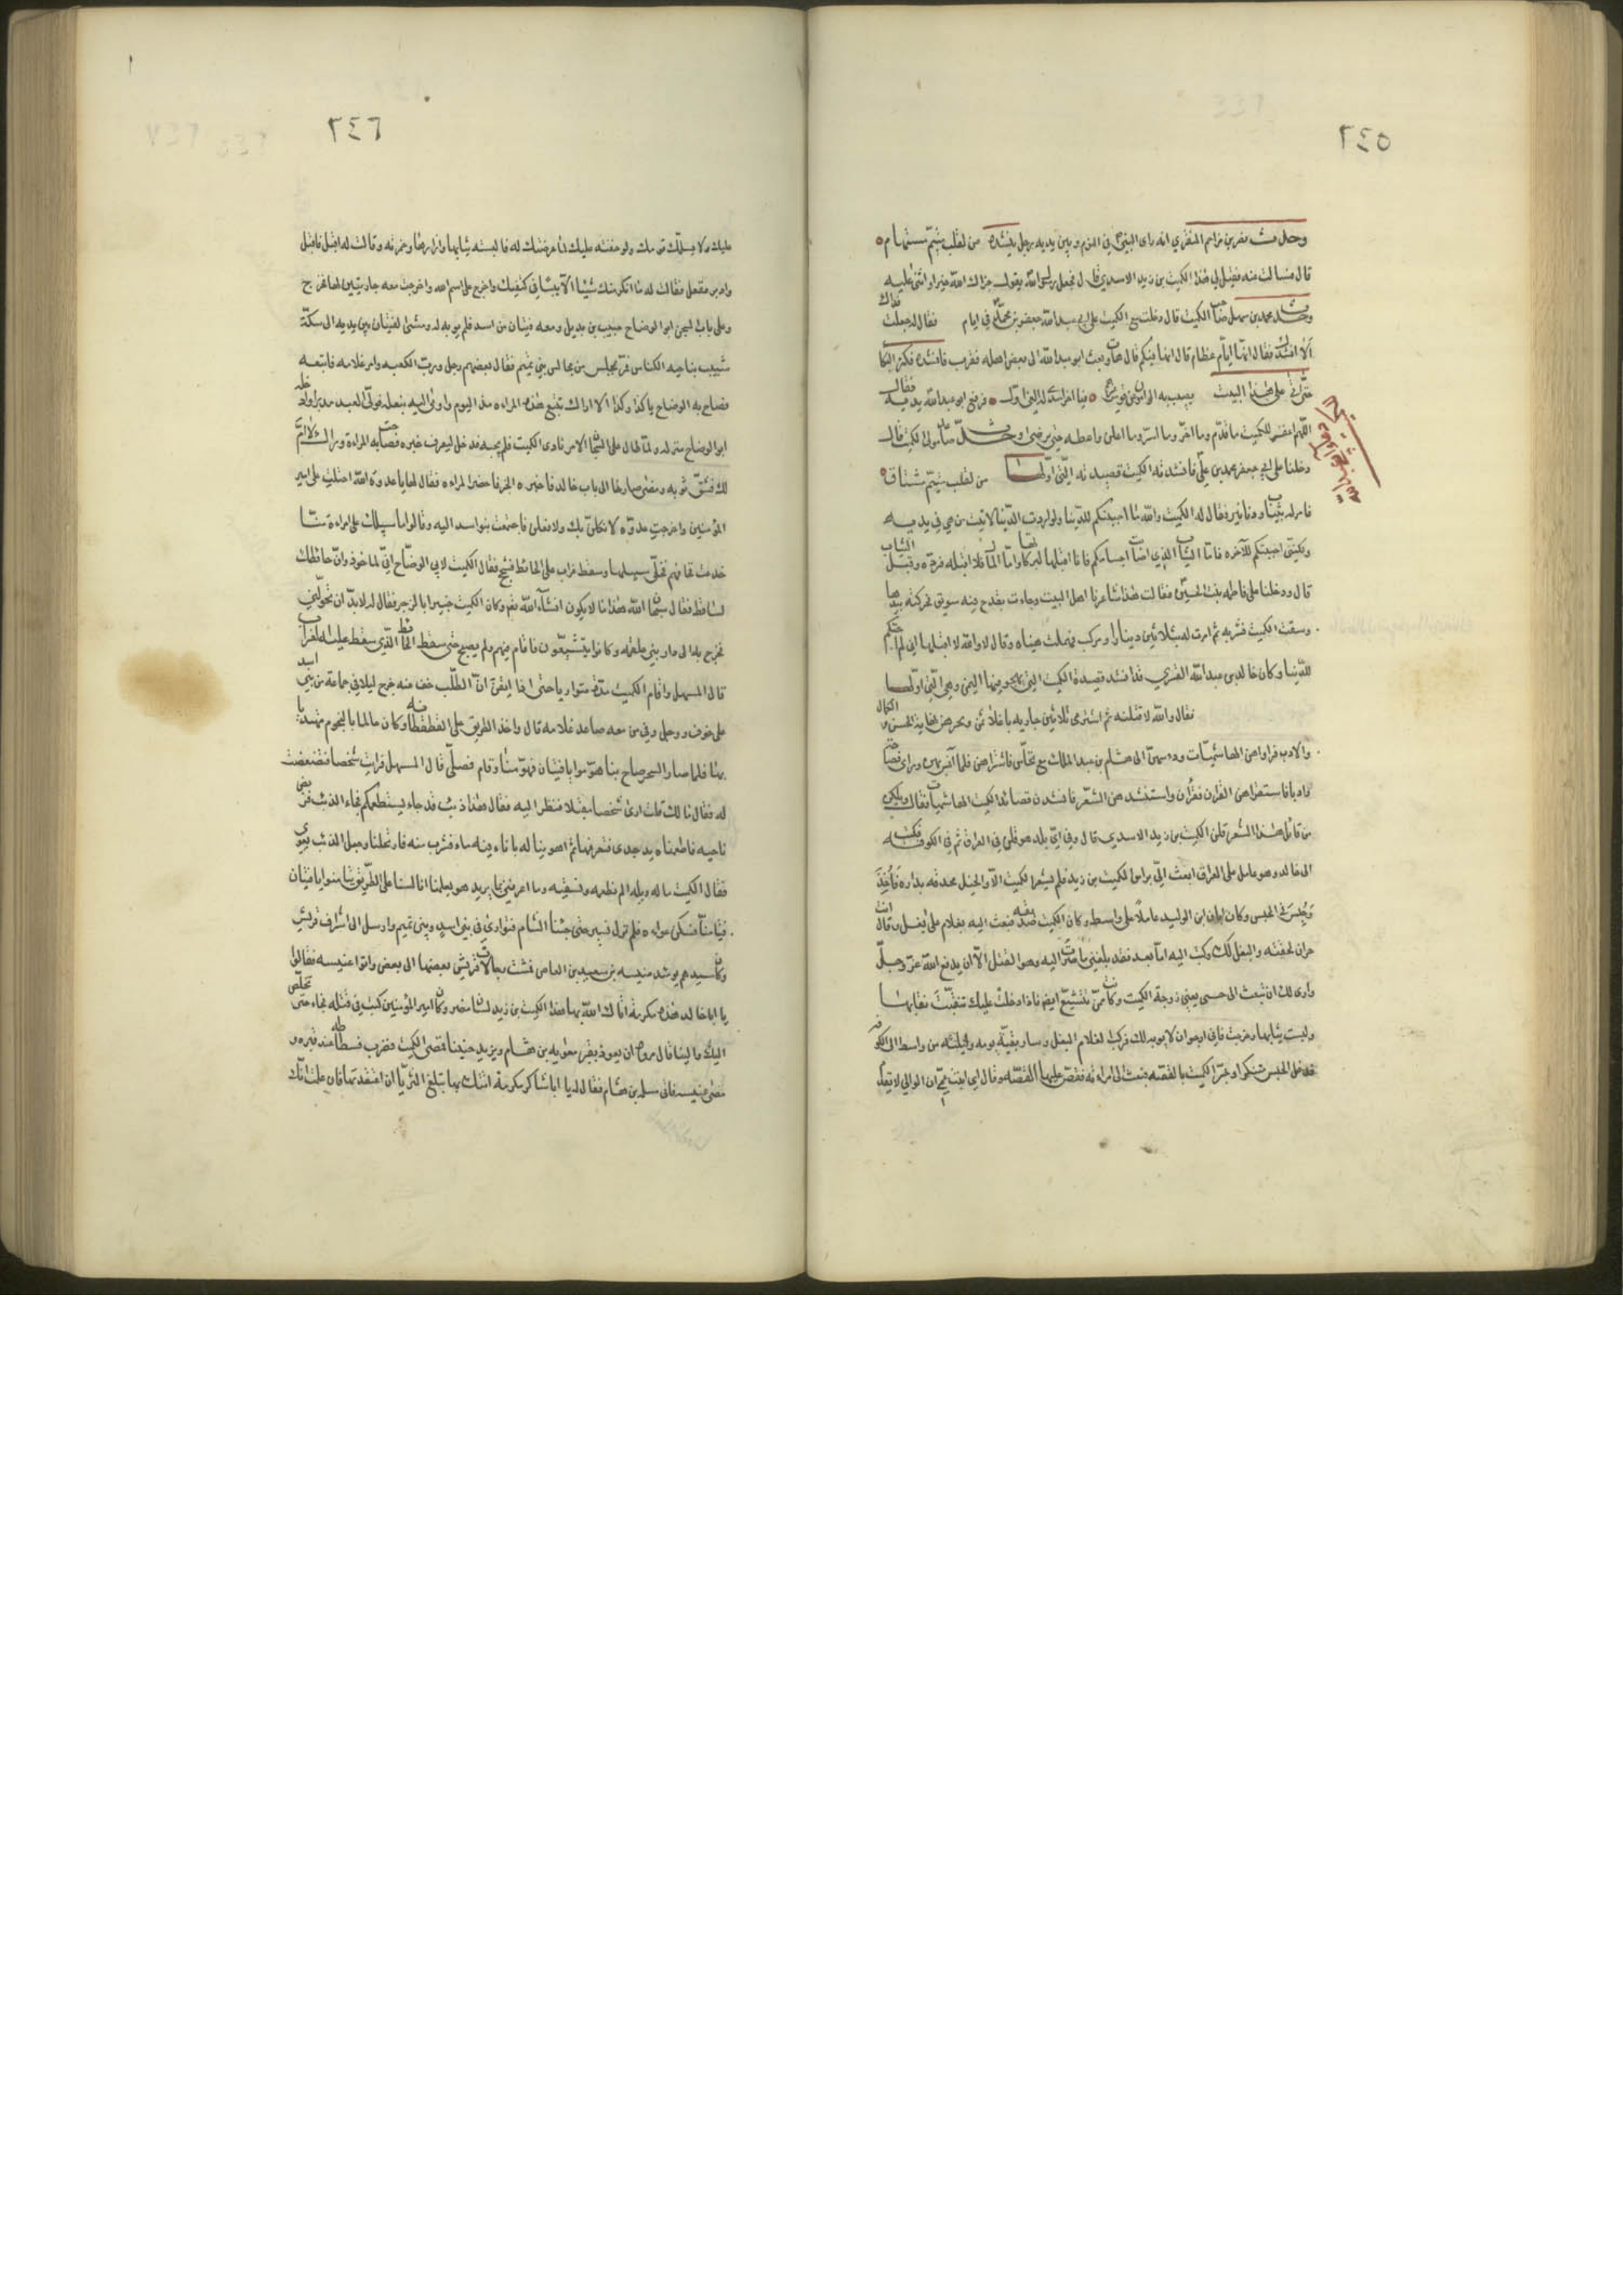 ٢٤٥
وحدث نصر بن مزاحم المنقري انه راى النبي في النوم وبين يديه رجل ينشده من لقلب متيم مستهام
قال فسالت عنه فقيل لي هذا الكميت بن زيد الاسدي قال فجعل رسول الله يقول جزاك الله خيرا واثنى عليه
وحدث محمد بن سهل صاحب الكميت قال دخلت مع الكميت على ابي عبد الله جعفر بن محمد في ايام فقال له جعلت فداك
الا انشدك فقال انها ايام عظام قال انها فيكم قال هات وبعث ابو عبد الله الى بعض اهله فقرب فانشده فكثر البكا
حتى اتى على هذا البيت يصيب به الرامون عن قوس فيا اخرا سدى له الغي اول فرفع ابو عبد الله يديه فقال
اللهم اغفر للكميت ما قدم وما اخر وما اسر وما اعلن واعطه حتى يرضى وحدث صاعد مولى الكميت قال
دخلنا على ابي جعفر محمد بن علي فانشدته الكميت قصيدته التي اولها من لقلب متيم مشتاق
فامر له بثياب ودنانير فقال له الكميت والله ما احببتكم للدنيا ولو اردت الدنيا لاتيت من هي في يديه
ولكنني احببتكم للآخره فاما الثياب الذي اصاب اجسامكم فانا اقبلها لبركاتها واما المال فلا اقبله فرده وقبل الثياب
قال ودخلنا على فاطمه بنت الحسين فقالت هذا شاعرنا اهل البيت وجاءت بقدح فيه سويق فحركته بيدها
وسقت الكميت فشربه ثم امرت له بثلاثين دينارا ومركب فهملت عيناه وقال لا والله لا اقبلها اني لم احبكم
للدنيا وكان خالد بن عبد الله القسري قد انشد قصيدة الكميت التي يهجو فيها اليمن وهي التي اولها
فقال والله لاقتلنه ثم اشترى ثلاثين جاريه باغلا ثمن وتخيرهن نهاية الحسن والكمال
والادب فرواهن الهاشميات ودسهن الى هشام بن عبد الملك مع نخاس فاشتراهن فلما انس بهن وراى فصاحة
وادبا فاستقراهن القرآن فقرأن واستنشدهن الشعر فانشدن قصائد الكميت الهاشميات فقال ويلكن
من قائل هذا الشعر قلن الكميت بن زيد الاسدي قال وفي اي بلد هو قلن في العراق ثم في الكوفه فكتب
الى خالد وهو عامل على العراق ابعث الي براس الكميت بن زيد فلم يشعر الكميت الا والخيل محدقه بداره فاخذ
وحبس في الحبس وكان ابان ابن الوليد عاملا على واسط وكان الكميت صديقه فبعث اليه بغلام على بغل وقال انت
حر ان لحقته والبغل لك وكتب اليه اما بعد فقد بلغني ما صرت اليه وهو القتل الا ان يدفع الله عز وجل
وارى لك ان تبعث الى حبى يعني زوجة الكميت وكانت ممن تتشيع ايضا فاذا دخلت عليك تنقبت نقابها
ولبست ثيابها وخرجت فاني ارجو ان لا يوبه لك فركب الغلام البغل وسار بقية يومه وليلته من واسط الى الكوفه
فدخل الحبس متنكرا وخبر الكميت بالقصه فبعث الى امراته فقص عليها القصه وقال اي ابنت عم ان الوالي لا يقدم
٢٤٦
عليك ولا يسلمك قومك ولو خفته عليك لما عرضتك له فالبسته ثيابها وازارها وخمرته وقالت له اقبل فاقبل
وادبر ففعل فقالت له ما انكر منك شيئا الا يبسا في كتفيك واخرج على اسم الله واخرجت معه جاريتين لها فخرج
وعلى باب السجن ابو الوضاح حبيب بن بديل ومعه فتيان من اسد فلم يوبه له ومشى الفتيان بين يديه الى سكة
شبيب بناحيه الكناس فمر بمجلس من مجالس بني تميم فقال بعضهم رجل ورب الكعبه وامر غلامه فاتبعه
فصاح به ابو الوضاح يا كذا وكذا الا اراك تتبع هذه المراه منذ اليوم واومى اليه بنعله فولى العبد مدبرا وادخله
ابو الوضاح منزله ولما طال على السجان الامر نادى الكميت فلم يجبه فدخل ليعرف خبره فصاحت به المراة وراك لا ام
لك فشق ثوبه ومضى صارخا الى باب خالد فاخبره الخبر فاحضر المراه فقال لها يا عدوة الله احتلت على امير
المؤمنين واخرجت عدوه لانكلن بك ولافعلن فاجتمعت بنو اسد اليه وقالوا ما سبيلك على امراة منا
خدعت فخافهم فخلى سبيلها وسقط غراب على الحائط فنعب فقال الكميت لابي الوضاح اني لماخوذ وان حائطك
لساقط فقال سبحان الله هذا ما لا يكون انشاء الله نعم وكان الكميت خبيرا بالزجر فقال له لا بد ان تحولني
فخرج به الى دار بني علقمه وكانوا يتشيعون فاقام فيهم ولم يصبح حتى سقط الحائط الذي سقط عليه الغراب
قال المسهل واقام الكميت مدة متواريا حتى اذا ايقن ان الطلب خف عنه خرج ليلا في جماعة من بني اسد
على خوف ووجل وفي من معه صاعد غلامه قال واخذ الطريق على القطقطانه وكان عالما بالنجوم مهتديا
بها فلما صار السحر صاح بنا هوموا يا فتيان فهومنا وقام فصلى قال المسهل فرايت شخصا فتضعضعت
له فقال مالك قلت ارى شخصا مقبلا فنظر اليه فقال هذا ذيب قد جاء يستطعمكم فجاء الذئب فربض
ناحيه فاطعمناه يد جدى فتعرقها ثم اهوينا له باناء فيه ماء فشرب منه فارتحلنا وجعل الذئب يعوي
فقال الكميت ما له ويله الم نطعمه ونسقيه وما اعرفني بما يريد هو يعلمنا انا لسنا على الطريق تيامنوا يا فتيان
فتيامنا فسكن عواءه فلم نزل نسير حتى جئنا الشام فتوارى في بني اسد وبني تميم وارسل الى اشراف قريش
وكان سيدهم يومئذ عنبسه بن سعيد بن العاص فمشت رجالات قريش بعضها الى بعض واتوا عنبسه فقالوا
يا ابا خالد هذه مكرمة اتاك الله بها هذا الكميت بن زيد لسان مضر وكان امير المؤمنين كتب في قتله فجاء حتى تخلص
اليك والينا قال مروه ان يعوذ بقبر معويه بن هشام ويزيد حنينا فمضى الكميت فضرب فسطاطه عند قبره و
مضى عنبسه فاتى مسلمه بن هشام فقال له يا ابا شاكر مكرمة اتيتك بها تبلغ الثريا ان اعتقدتها فان علمت انك